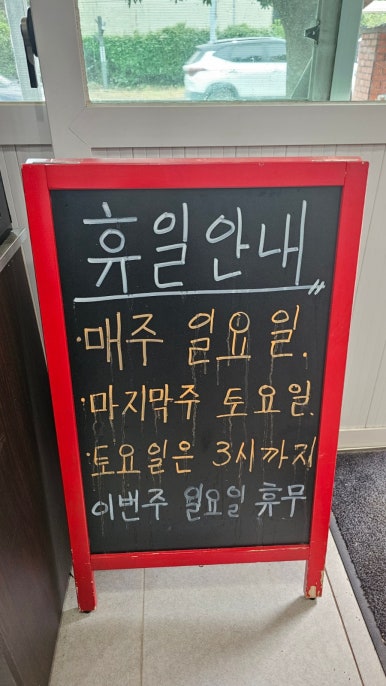 휴일안내
·매주 일요일.
·마지막주 토요일.
·토요일은 3시까지
이번주 일요일 휴무